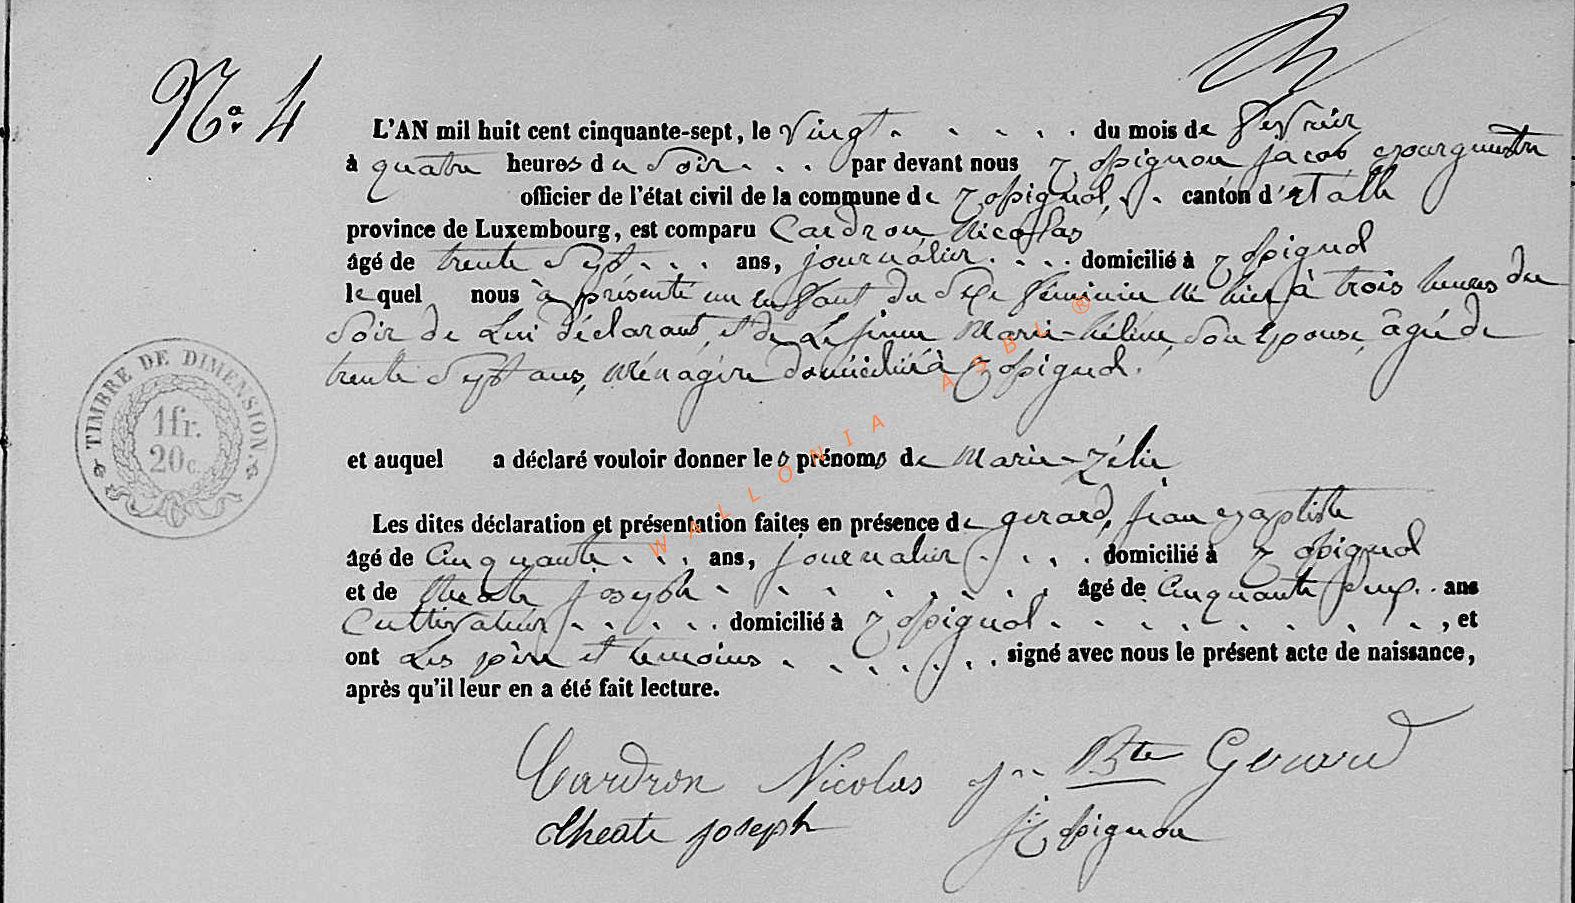 N° 4
L'AN mil huit cent cinquante-sept, le vingt . . . . . du mois de février
à quatre heures du soir . . . par devant nous Rossignon Jacob Bourgmestre
officier de l'état civil de la commune de Rossignol, . . canton d'Etalle
province de Luxembourg, est comparu Cardron Nicolas
âgé de trente sept . . . ans, journalier . . . . domicilié à Rossignol
lequel nous à présenté un enfant du sexe féminin né hier à trois heures du
soir de Lui déclarant, et de Marie-Hélène, son épouse, âgée de
trente sept ans, ménagère domiciliée à Rossignol.
et auquel a déclaré vouloir donner les prénoms de Marie-Zélie
Les dites déclaration et présentation faites en présence de gerard, jean Baptiste
âgé de Cinquante . . . ans, journalier . . . . domicilié à Rossignol
et de theate joseph . . . . . . . . âgé de Cinquante deux . . ans
Cultivateur . . . . . domicilié à Rossignol . . . . . . . . . , et
ont Les père et temoins . . . . . . . signé avec nous le présent acte de naissance,
après qu'il leur en a été fait lecture.
TIMBRE DE DIMENSION.
1 fr.
20 c.
Cardron Nicolas jn Bte Gerard
theate joseph J Rossignon
WALLONIA ASBL ®